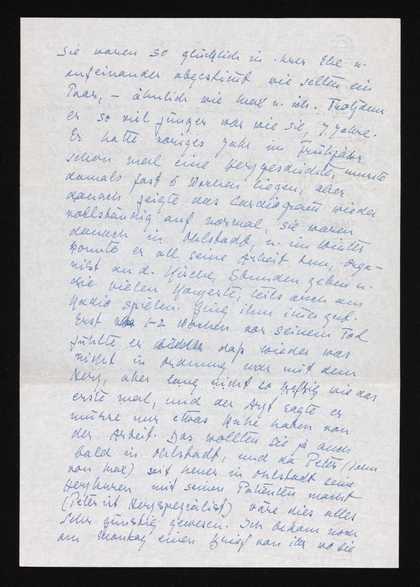 Sie waren so glücklich in ihrer Ehe u.
aufeinander abgestimmt wie selten ein
Paar, – ähnlich wie Max u. ich. Trotzdem
er so viel jünger war wie sie, 7 Jahre.
Er hatte voriges Jahr im Frühjahr
schon mal eine Herzgeschichte, musste
damals fast 6 Wochen liegen, aber
danach zeigte das Cardiogram wieder
vollständig auf normal, sie waren
danach in Ohlstadt, u. im Winter
konnte er all seine Arbeit tun, Orga-
nist an d. Kirche, Stunden geben u.
die vielen Konzerte, teils auch am
Radio spielen. Ging ihm immer gut.
Erst 1-2 Wochen vor seinem Tod
fühlte er dass wieder was
nicht in Ordnung war mit dem
Herz, aber lang nicht so heftig wie das
erste mal, und der Arzt sagte er
müsse nur etwas Ruhe haben von
der Arbeit. Das wollten sie ja auch
bald in Ohlstadt, und da Peter (Sohn
von Max) seit heuer in Ohlstadt seine
Herzkuren mit seinen Patienten macht
(Peter ist Herzspezialist) wäre dies alles
sehr günstig gewesen. Ich bekam noch
am Montag einen Brief von ihr wo sie